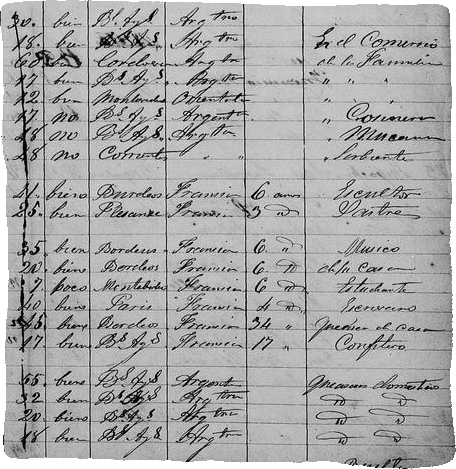 30. bien Bs Ays Argtno
18. bien Bs Ays Argtna En el Comercio
60 Cordovesa Argtna de la Familia
17 bien Bs Ays. Argtna " " "
12 bien Montevideo Oriental " "
17 no Bs Ays Argentna " Cocinera
28 no Bs Ays Argtna " Mucama
28 no Corrientes " " " Serbiente
41. bien Burdeos Francia 6 años Escultor
25. bien Francia 3 D Sastre
35 bien Bordeus Francia 6 " Musico
20. bien Bordeos Francia 6 D de su casa
7 poco Montebideo Francia 6 D Estudiante
40 bien Paris Francia 4 D Escribano
45. bien Bordeos Francia 34 " Queaser de casa
17 bien Bs Ays Francia 17 " Confitero
55 bien Bs Ays Argent Queaseres domesticos
32 bien Bs Ays Argtna D D
20. bien Bs Ays Argtna D D
18 bien Bs Ays Argtna D D